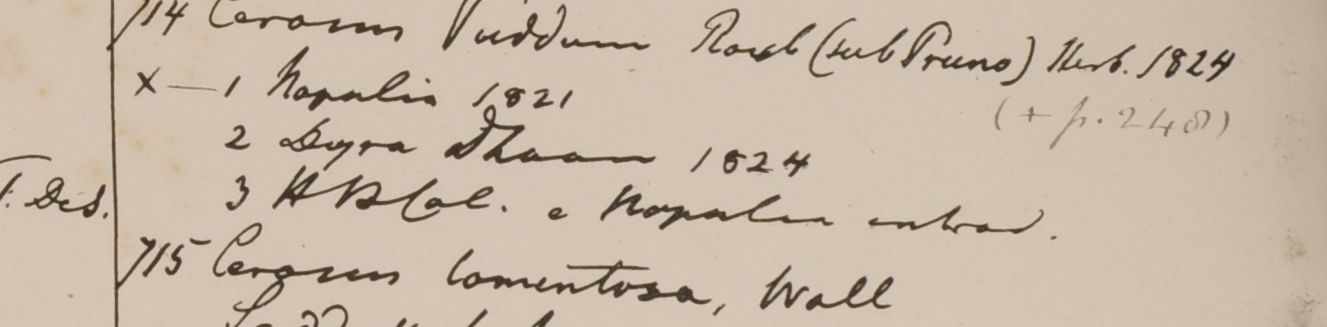 714 Cerasus Puddum Roxb (sub Pruno) Herb. 1824
(+ p. 248)
X — 1 Napalia 1821
2 Deyra Dhoon 1824
T. Des. 3 HBCal. e Napalia introd.
715 Cerasus tomentosa, Wall